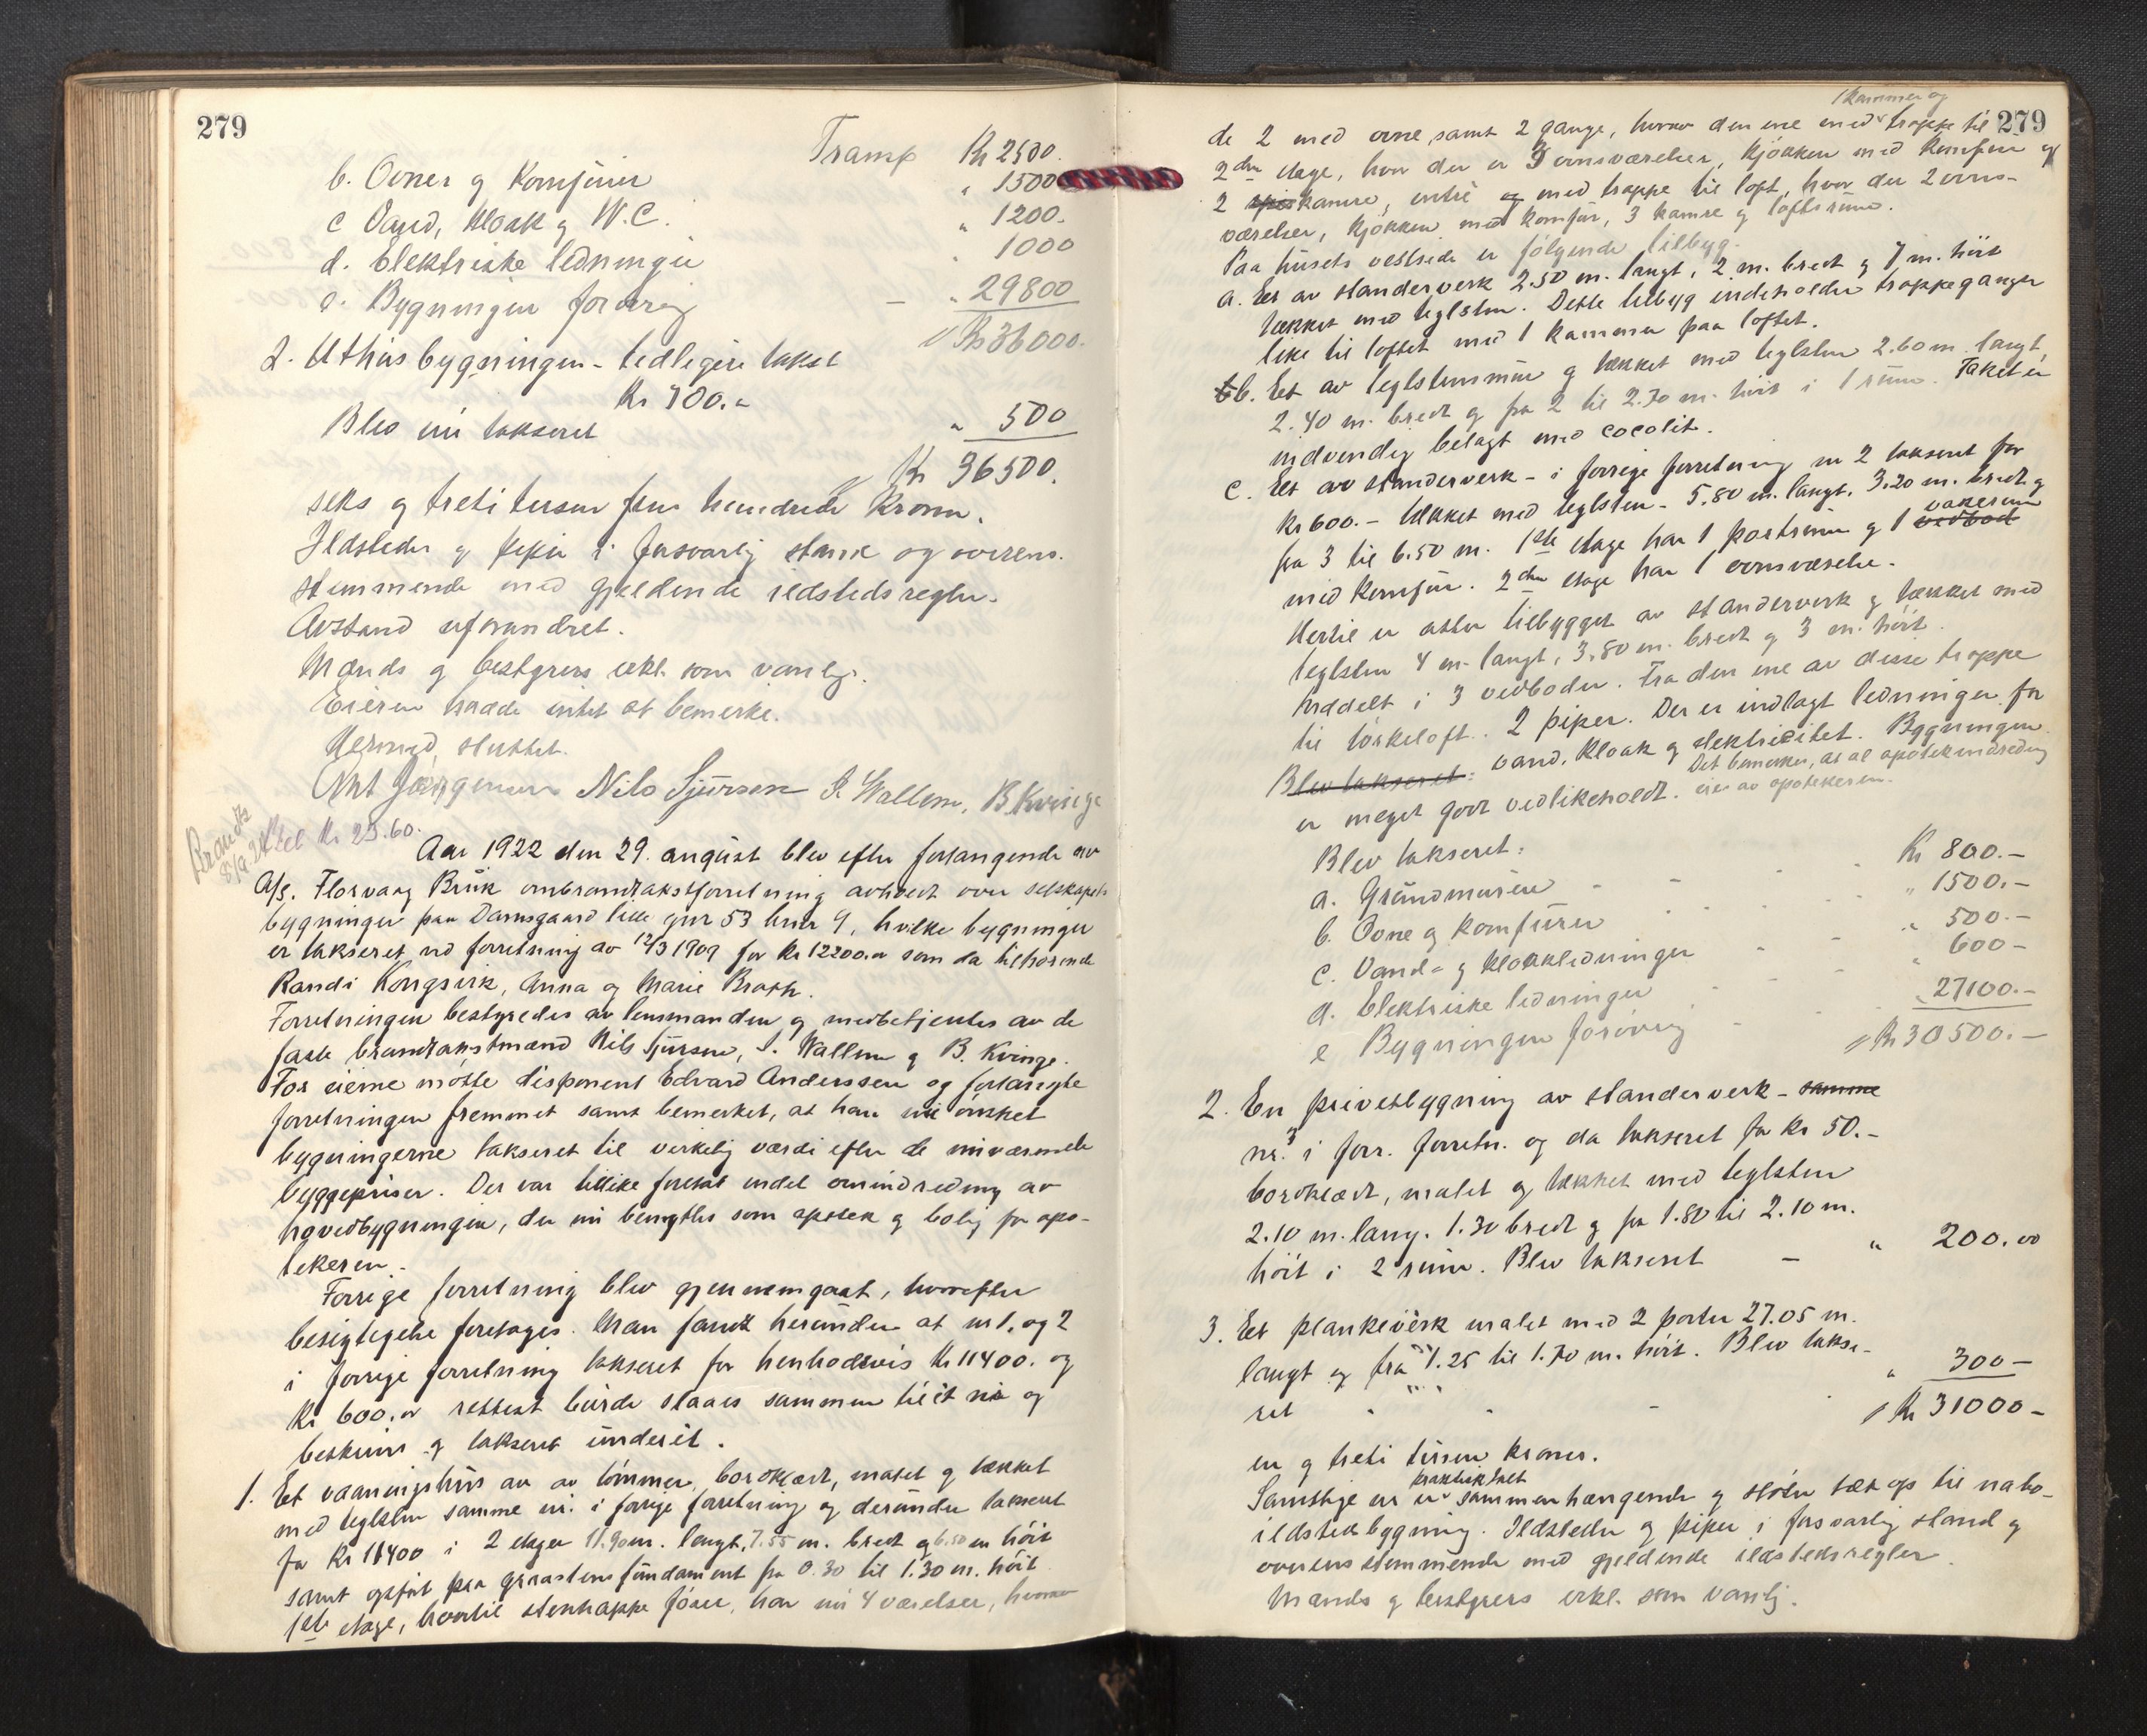 279
Transp Kr 2500.
b. Ovner og Komfurer " 1500
c Vand, kloak og W.C. " 1200.
d. Elektriske ledninger " 1000
e. Bygningen forøvrig — " 29800
Kr 36000.
2. Uthusbygningen - tidligere takst
Kr 700.-
Blev nu taksert " 500
Kr 36500.
seks og treti tusen fem hundrede kroner.
Ildsteder og piper i forsvarlig stand og overens-
stemmende med gjeldende ildstedsregler.
Avstand uforandret.
Mænds og bestyrers erkl. som vanlig.
Eieren hadde intet at bemerke.
Dermed sluttet.
Nils Sjursen S. Wallem, B Kvinge
Kr 23.60.
Aar 1922 den 29. august blev efter forlangende av
A/S. Florvaag Bruk ombrandtakstforretning avholdt over selskapets
bygninger paa Damsgaard lille gnr 53 bnr 9, hvilke bygninger
er taksert ved forretning av 12/3 1909 for kr 12200.00 som da tilhørende
Randi Kongsvik, Anna og Marie Brath.
Forretningen bestyredes av lensmanden og medbetjentes av de
faste brandtakstmænd Nils Sjursen, S. Wallem og B. Kvinge.
For eierne møtte disponent Edvard Anderssen og forlangte
forretningen fremmet samt bemerket, at han nu ønsket
bygningerne taksert til virkelig værdi efter de nuværende
byggepriser. Der var tillike foretat endel omindredning av
hovedbygningen, der nu benyttes som apotek og bolig for apo-
tekeren.
Forrige forretning blev gjennemgaat, hvorefter
besigtigelse foretoges. Man fandt herunder at nr 1. og 2
i forrige forretning taksert for henholdsvis Kr 11400. og
Kr 600.00 rettest burde slaaes sammen til et nr og
beskrives og takseres under et.
1. Et vaaningshus av av tømmer, bordklædt, malet og tækket
med teglsten samme nr. i forrige forretning og derunder taksert
for Kr 11400 i 2 etager 11.90 m. langt, 7.55 m. bredt og 6.50 m høit
samt opført paa graastensfundament fra 0.30 til 1.30 m. høit.
1ste etage, hvortil stentrappe fører, har nu 4 værelser, hvorav
279
1 kammer og
de 2 med ovne, samt 2 gange, hvorav den ene med trappe til
2den etage, hvor der er 3 ovnsværelser, kjøkken med komfur og
2 kamre, entré og med trappe til loft, hvor der 2 ovns-
værelser, kjøkken med komfur, 3 kamre og loftsrum.
Paa husets vestside er følgende tilbyg.
a. Et av standerverk 2.50 m. langt, 2 m. bredt og 7 m. høit
tækket med teglsten. Dette tilbyg indeholder trappeganger
like til loftet med 1 kammer paa loftet.
b. Et av teglstensmur og tækket med teglsten 2.60 m. langt,
2.40 m. bredt og fra 2 til 2.70 m. høit i 1 rum. Taket er
indvendig belagt med cocolit.
c. Et av standerverk - i forrige forretning nr 2 taksert for
Kr 600.- tækket med teglsten - 5.80 m. langt, 3.20 m. bredt og
fra 3 til 6.50 m. 1ste etage har 1 portrum og 1 vedbod vaskerum
med komfur. 2den etage har 1 ovnsværelse.
Hertil er atter tilbygget av standerverk og tækket med
teglsten 4 m. langt, 3.80 m. bredt og 3 m. høit.
Inddelt i 3 vedboder. Fra den ene av disse trappe
til tørkeloft. 2 piper. Der er indlagt ledninger for
Blev taksert: vand, kloak og elektricitet. Bygningen
er meget godt vedlikeholdt. Det bemerkes, at al apotekindredning
eies av apotekeren.
Blev taksert:
a. Grundmuren Kr 800.-
b. Ovne og komfurer " 1500.-
c. Vand- og kloakledninger " 500.-
d. Elektriske ledninger " 600-
e Bygningen forøvrig " 27100.-
Kr 30500.-
2. En privetbygning av standerverk - samme
nr. 3 i forr. forretn. og da taksert for kr 50.-
bordklædt, malet og tækket med teglsten
2.10 m. lang. 1.30 bredt og fra 1.80 til 2.10 m.
høit i 2 rum. Blev taksert — " 200.00
3. Et plankeverk malet med 2 porter 27.05 m.
langt og fra 1.25 til 1.70 m. høit. Blev takse-
ret " 300-
Kr 31000-
en og treti tusen kroner.
Samtlige nr er praktisk talt sammenhængende og støter tæt op til nabo-
ildstedbygning. Ildsteder og piper i forsvarlig stand og
overensstemmende med gjeldende ildstedsregler.
Mænds og bestyrers erkl. som vanlig.